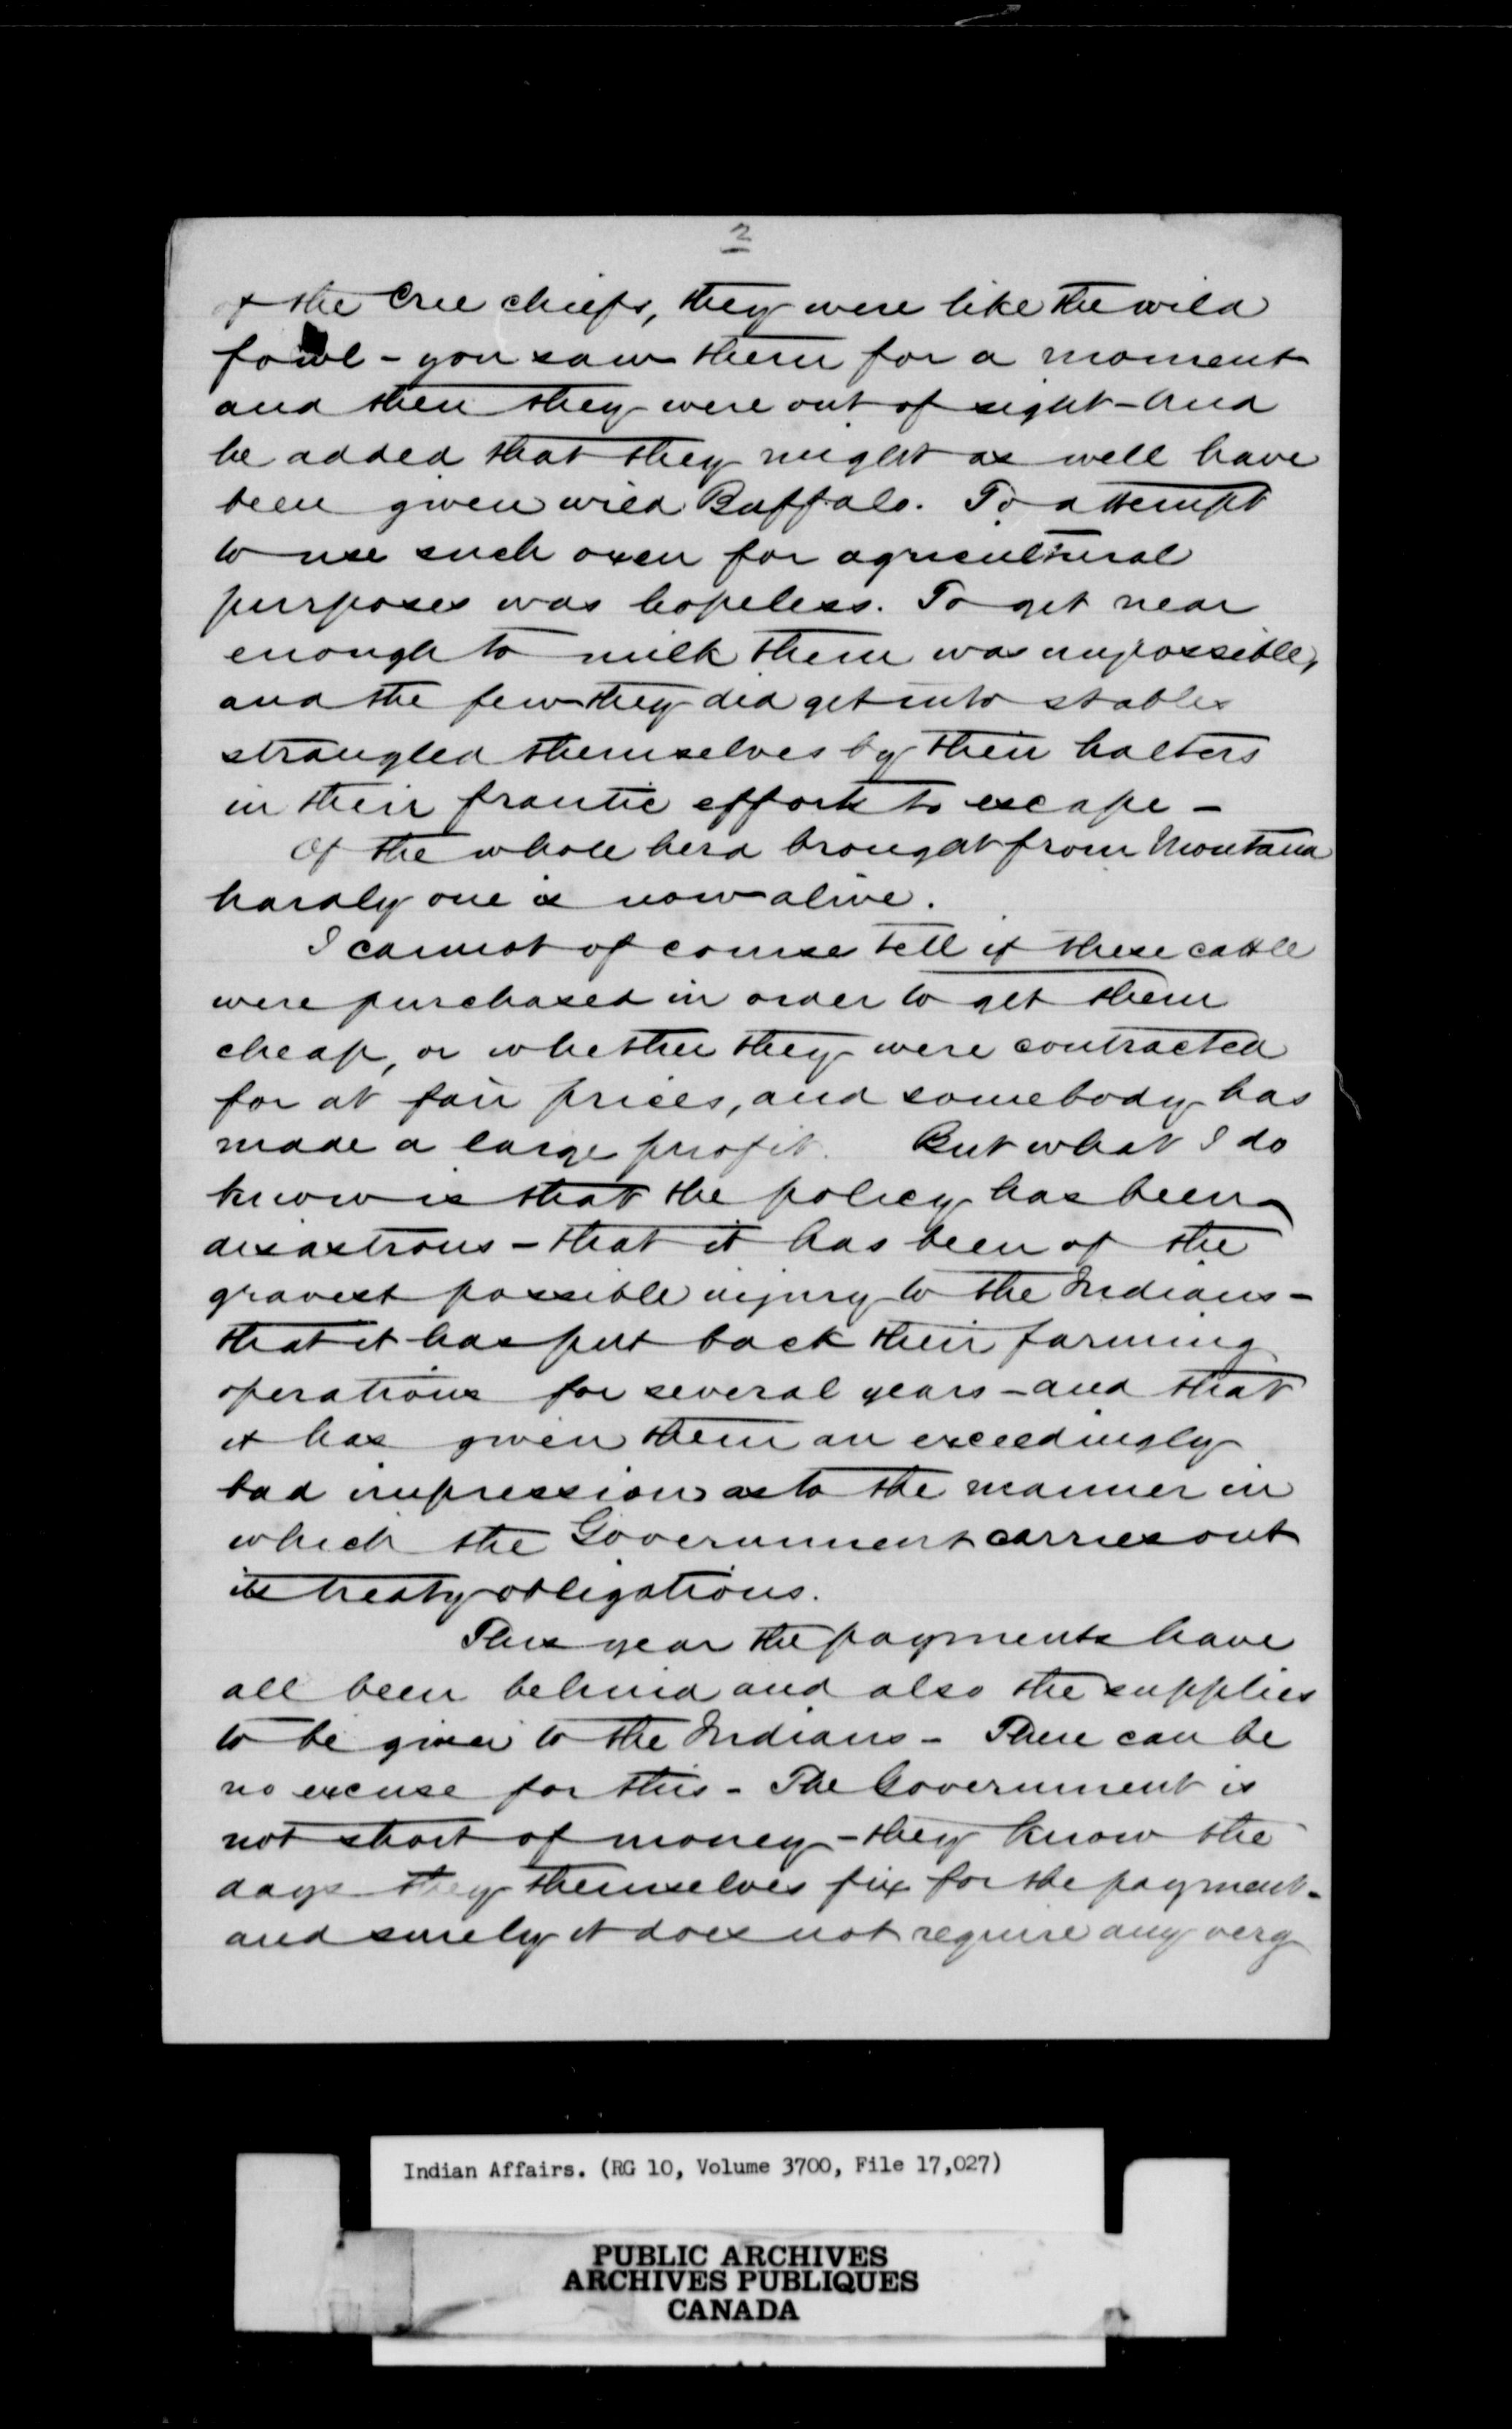 2
of the Cree chiefs, they were like the wild
fowl - you saw them for a moment
and then they were out of sight - And
he added that they might as well have
been given wild Buffalo. To attempt
to use such oxen for agricultural
purposes was hopeless. To get near
enough to milk them was impossible,
and the few they did get into stables
strangled themselves by their halters
in their frantic efforts to escape -
Of the whole herd brought from Montana
hardly one is now alive.
I cannot of course tell if these cattle
were purchased in order to get them
cheap, or whether they were contracted
for at fair prices, and somebody has
made a large profit. But what I do
know is that the policy has been
disastrous - that it has been of the
gravest possible injury to the Indians -
that it has put back their farming
operations for several years - and that
it has given them an exceedingly
bad impression as to the manner in
which the Government carries out
its treaty obligations.
This year the payments have
all been behind and also the supplies
to be given to the Indians - There can be
no excuse for this - The Government is
not short of money - they know the
days they themselves fix for the payment -
and surely it does not require any very
Indian Affairs. (RG 10, Volume 3700, File 17,027)
PUBLIC ARCHIVES
ARCHIVES PUBLIQUES
CANADA